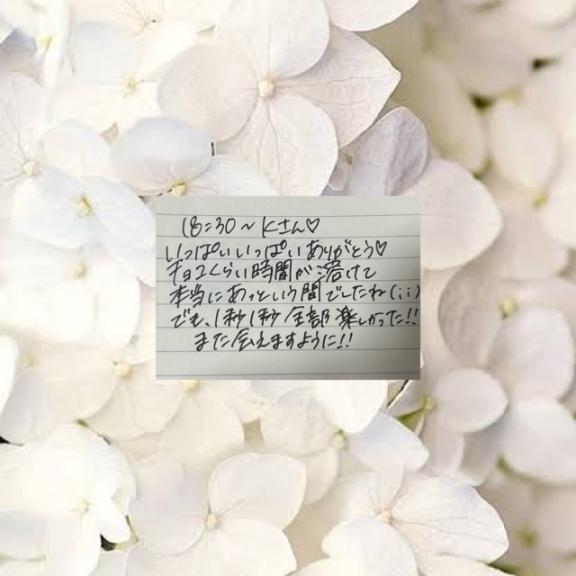 18:30~Kさん♡
いっぱいいっぱいありがとう♡
チョコくらい時間が溶けて
本当にあっという間でしたね(;;)
でも、1秒1秒全部楽しかった!!
また会えますように!!